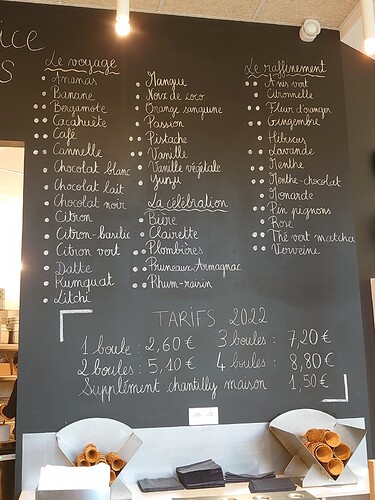 ice
s
Le voyage
Ananas
Banane
Bergamote
Cacahuète
Café
Cannelle
Chocolat blanc
Chocolat lait
Chocolat noir
Citron
Citron-basilic
Citron vert
Datte
Kumquat
Litchi
Mangue
Noix de coco
Orange sanguine
Passion
Pistache
Vanille
Vanille végétale
Yunzu
La célébration
Bière
Clairette
Plombières
Pruneaux-Armagnac
Rhum-raisin
Le raffinement
Anis vert
Citronnelle
Fleur d'oranger
Gingembre
Hibiscus
Lavande
Menthe
Menthe-chocolat
Monarde
Pin pignons
Rose
Thé vert matcha
Verveine
TARIFS 2022
1 boule : 2,60 €
2 boules : 5,10 €
3 boules : 7,20 €
4 boules : 8,80 €
Supplément chantilly maison 1,50 €